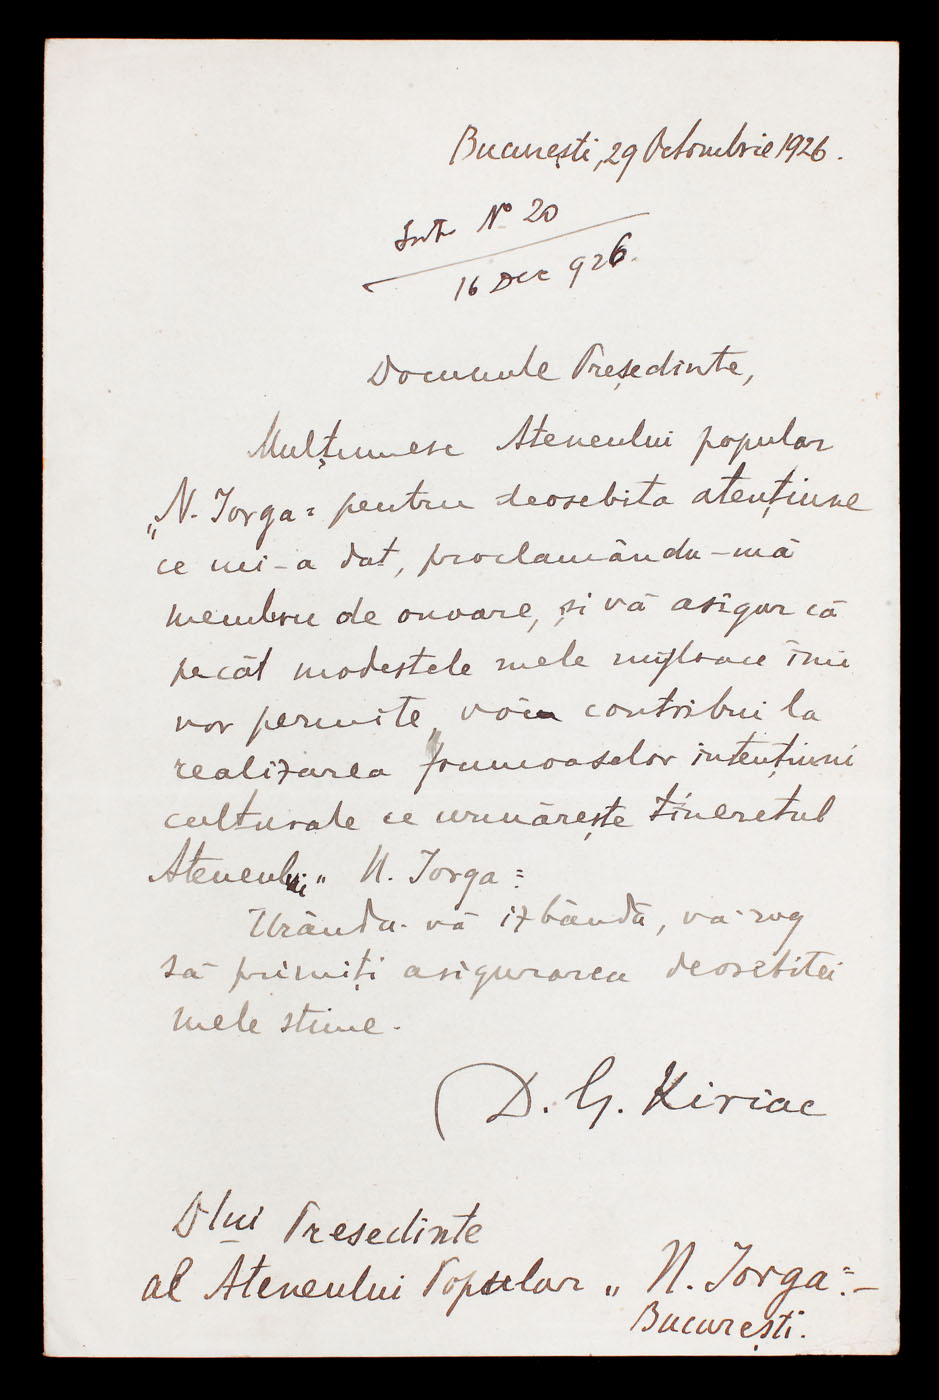 București, 29 Octombrie 1926.
Intr Nº 20
16 Dec 926.
Domnule Președinte,
Mulțumesc Ateneului popular
„N. Iorga" pentru deosebita atențiune
ce mi-a dat, proclamându-mă
membru de onoare, și vă asigur că
pe cât modestele mele mijloace îmi
vor permite, voiu contribui la
realizarea frumoaselor intențiuni
culturale ce urmărește tineretul
Ateneului „N. Iorga"
Urându-vă izbândă, vă rog
să primiți asigurarea deosebitei
mele stime.
D. G. Kiriac
Dlui Presedinte
al Ateneului Popular „N. Iorga".-
București.